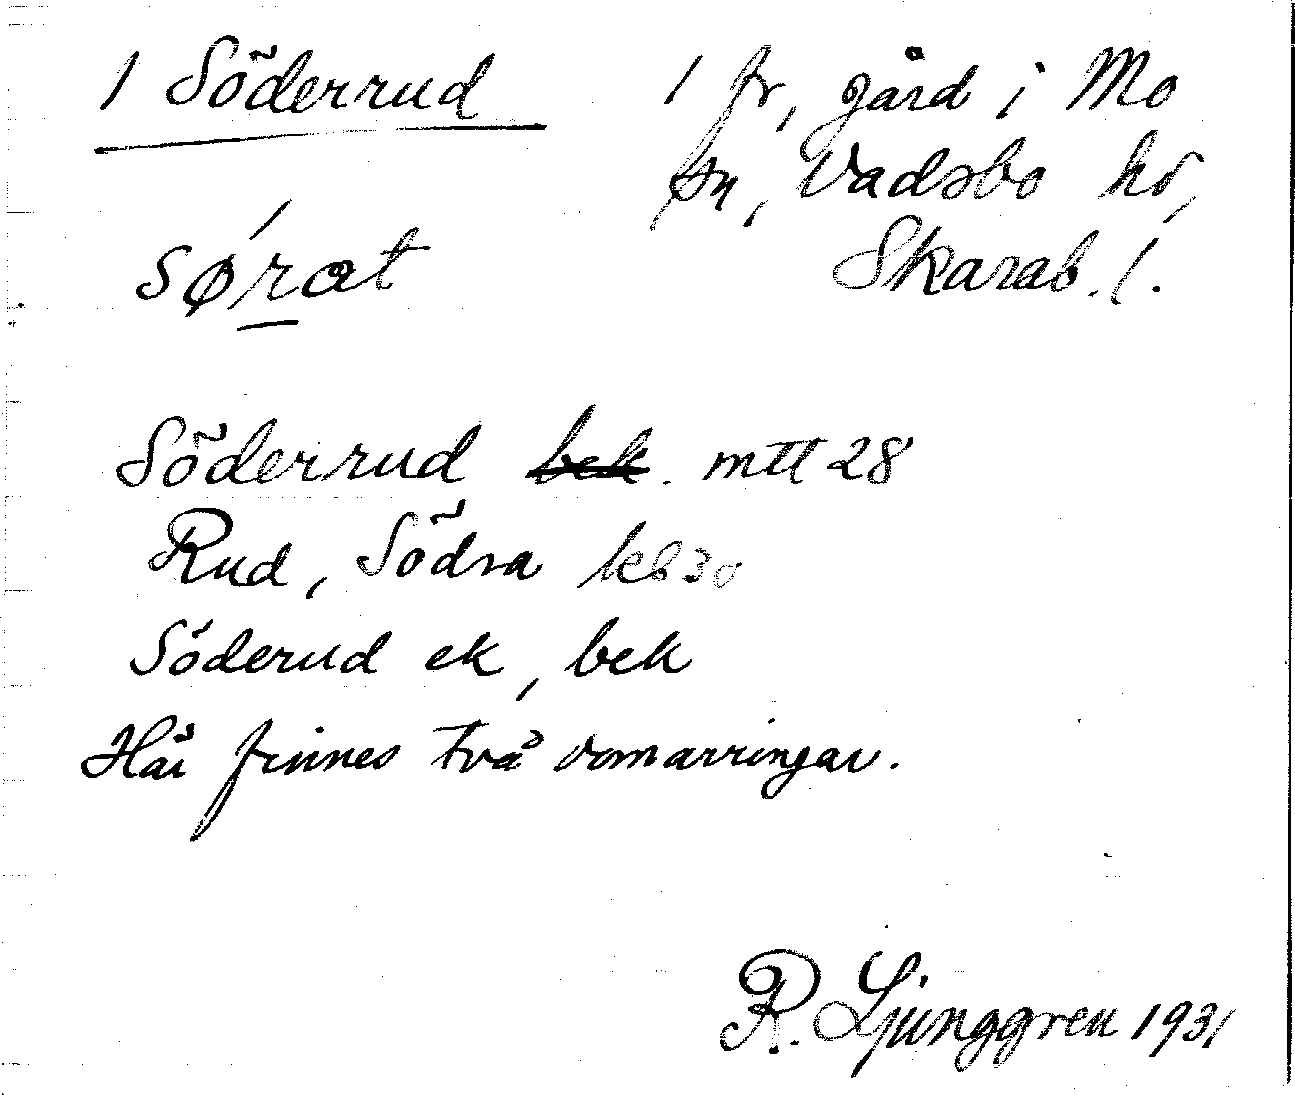 1 Söderrud
1 fr, gård i Mo
sn, Vadsbo hd,
Skarab. l.
sø´rat
Söderrud bek. mtl 28
Rud, Södra kb 30
Söderud ek, bek
Här finnes två domarringar.
R. Ljunggren 1931